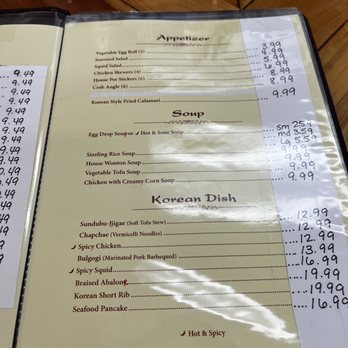 Appetizer
Vegetable Egg Roll (2) 3.99
Seaweed Salad 5.99
Squid Salad 6.99
Chicken Skewers (4) 8.99
House Pot Stickers (6) 8.99
Crab Angle (6)
Korean Style Fried Calamari 9.99
Soup
Egg Drop Soup or Hot & Sour Soup sm
md 3.59
Lg 5.59
Sizzling Rice Soup
House Wonton Soup
Vegetable Tofu Soup
Chicken with Creamy Corn Soup 9.99
Korean Dish
Sundubu-Jjigae (Soft Tofu Stew) 12.99
Chapchae (Vermicelli Noodles) 12.99
Spicy Chicken 12.99
Bulgogi (Marinated Pork Barbequed) 13.99
Spicy Squid 16.99
Braised Abalong 19.99
Korean Short Rib 19.99
Seafood Pancake 16.99
Hot & Spicy
9.49
9.49
9.49
9.49
9.49
9.49
9.49
9.49
9.49
9.49